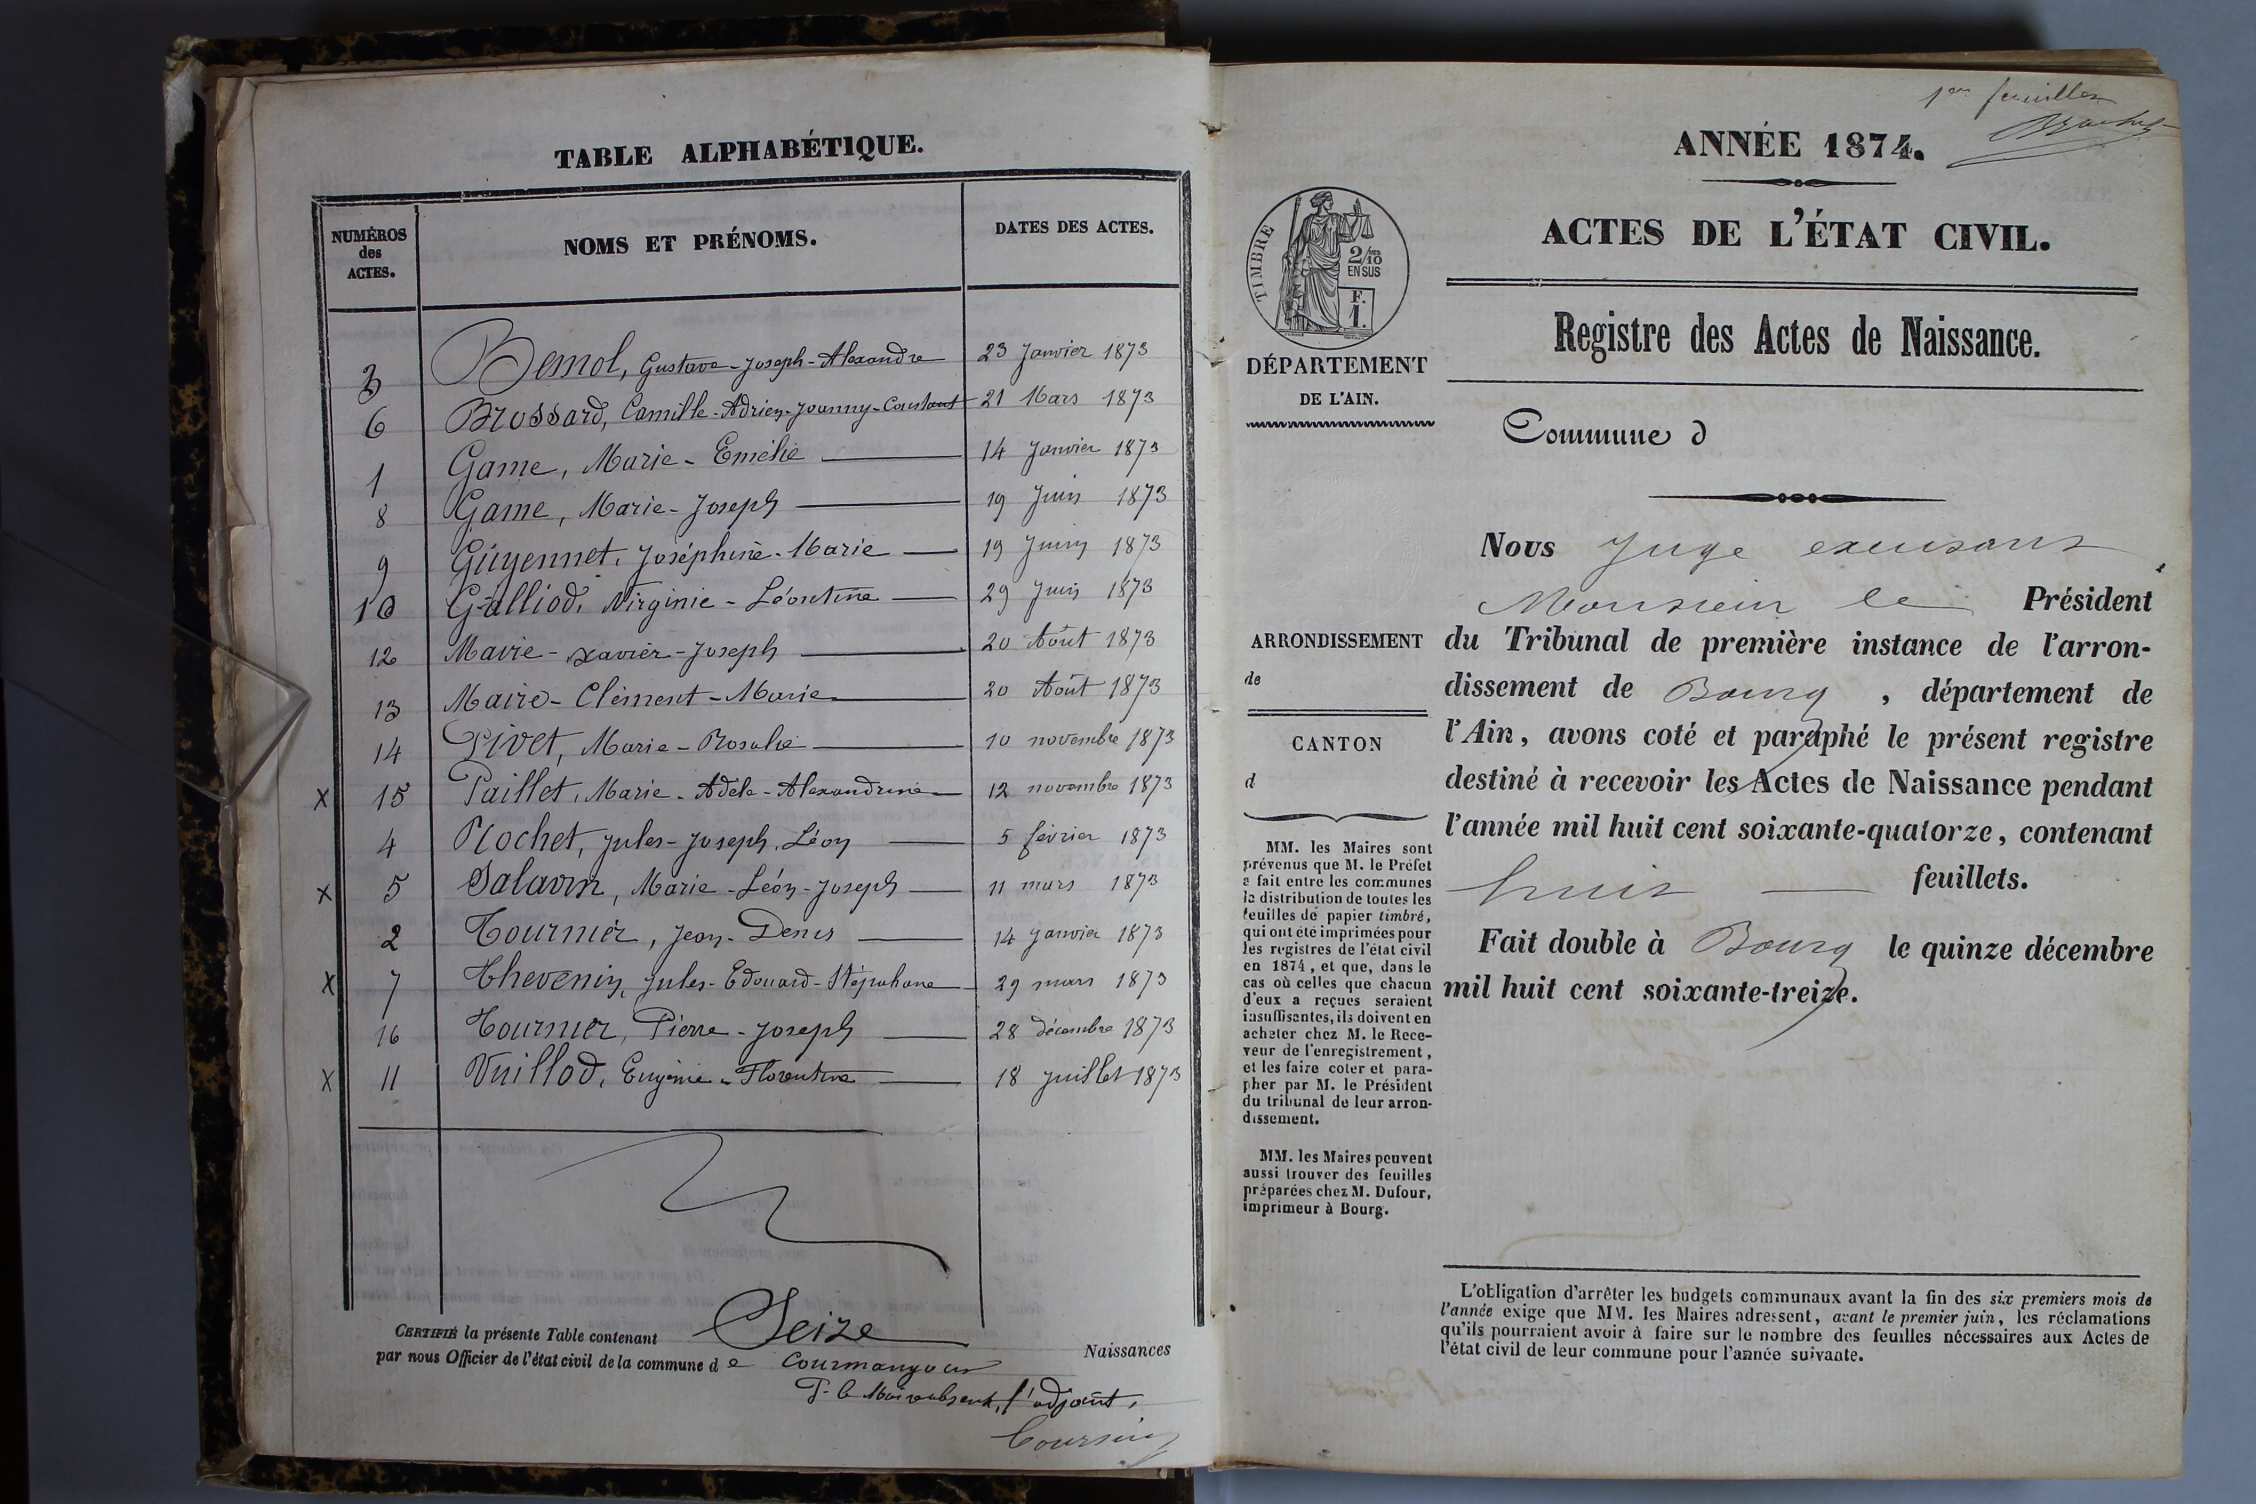 TABLE ALPHABÉTIQUE.
NUMÉROS des ACTES. NOMS ET PRÉNOMS. DATES DES ACTES.
3 Bemol, Gustave-Joseph-Alexandre 23 Janvier 1873
6 Brossard, Camille-Adrien-Joanny-Constant 21 Mars 1873
1 Game, Marie-Emélie 14 Janvier 1873
8 Game, Marie-Joseph 19 Juin 1873
9 Guyennet, Joséphine-Marie 19 Juin 1873
10 Galliod, Virginie-Léontine 29 Juin 1873
12 Maire-Xavier-Joseph 20 Août 1873
13 Maire-Clément-Marie 20 Août 1873
14 Pivet, Marie-Rosalie 10 novembre 1873
x 15 Paillet, Marie-Adèle-Alexandrine 12 novembre 1873
4 Rochet, Jules-Joseph, Léon 5 février 1873
x 5 Salavin, Marie-Léon-Joseph 11 mars 1873
2 Tournier, Jean-Denis 14 Janvier 1873
x 7 Thevenin, Jules-Edouard-Stéphane 29 mars 1873
16 Tournier, Pierre-Joseph 28 décembre 1873
x 11 Vuillod, Eugénie-Florentine 18 juillet 1873
CERTIFIÉ la présente Table contenant Seize Naissances
par nous Officier de l'état civil de la commune de Courmangoux
Pr le Maire absent, l'adjoint,
1er feuillet
ANNÉE 1874.
ACTES DE L'ÉTAT CIVIL.
Registre des Actes de Naissance.
TIMBRE
2/10
EN SUS
F.
1.
DÉPARTEMENT
DE L'AIN.
Commune d
ARRONDISSEMENT
de
CANTON
d
MM. les Maires sont
prévenus que M. le Préfet
a fait entre les communes
la distribution de toutes les
feuilles de papier timbré,
qui ont été imprimées pour
les registres de l'état civil
en 1874, et que, dans le
cas où celles que chacun
d'eux a reçues seraient
insuffisantes, ils doivent en
acheter chez M. le Rece-
veur de l'enregistrement,
et les faire coter et para-
pher par M. le Président
du tribunal de leur arron-
dissement.
MM. les Maires peuvent
aussi trouver des feuilles
préparées chez M. Dufour,
imprimeur à Bourg.
Nous Juge excusant
Monsieur le Président
du Tribunal de première instance de l'arron-
dissement de Bourg, département de
l'Ain, avons coté et paraphé le présent registre
destiné à recevoir les Actes de Naissance pendant
l'année mil huit cent soixante-quatorze, contenant
huit feuillets.
Fait double à Bourg le quinze décembre
mil huit cent soixante-treize.
L'obligation d'arrêter les budgets communaux avant la fin des six premiers mois de
l'année exige que MM. les Maires adressent, avant le premier juin, les réclamations
qu'ils pourraient avoir à faire sur le nombre des feuilles nécessaires aux Actes de
l'état civil de leur commune pour l'année suivante.